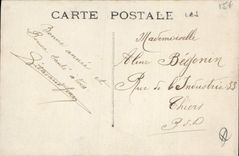 CARTE POSTALE
Bonne année et
Bonne Santé à tous
Mademoiselle
Aline
Rue de l'Industrie 33
Thiers
P. d. D